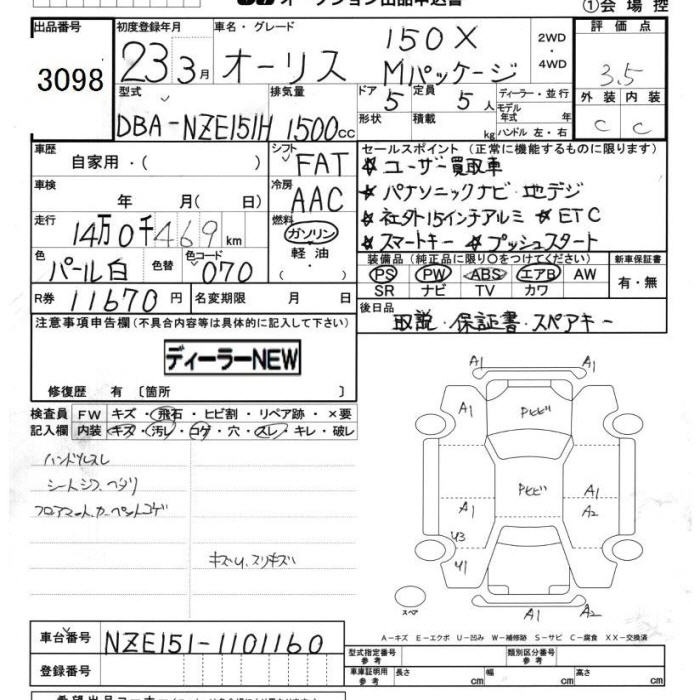 オークション出品申込書 ①会場控
出品番号 初度登録年月 車名・グレード 評価点
3098 23 3月 オーリス 150X Mパッケージ 2WD ・ 4WD 3.5
型式 排気量 ドア 定員 ディーラー・並行 外装 内装
DBA-NZE151H 1500cc 5 5人 モデル年式 年 C C
形状 積載 kg ハンドル 左・右
車歴 シフト セールスポイント (正常に機能するものに限ります)
自家用・( ) FAT ☆ユーザー買取車
車検 年 月( 日) 冷房 AAC ☆パナソニックナビ・地デジ
走行 14万0千469km 燃料 ガソリン 軽油 ☆社外15インチアルミ ☆ETC
☆スマートキー ☆プッシュスタート
色 パール白 色替 色コード 070
装備品 (純正品に限り○をつけてください) 新車保証書
PS PW ABS エアB AW 有・無
SR ナビ TV カワ
R券 11670円 名変期限 月 日 後日品
取説・保証書・スペアキー
注意事項申告欄(不具合内容等は具体的に記入して下さい)
ディーラーNEW
修復歴 有〔箇所 〕
検査員 FW キズ・飛石・ヒビ割・リペア跡・×要
記入欄 内装 キズ・汚レ・コゲ・穴・スレ・キレ・破レ
ハンドルスレ
シートシワ、ヘタリ
フロアマット、カーペットコゲ
キズU、スリキズ
A1 A1
A1 Pヒビ
Pヒビ A1
A1 A2
U3
Y1
スペア A1 A2
A-キズ E-エクボ U-凹み W-補修跡 S-サビ C-腐食 XX-交換済
車台番号 NZE151-1101160 型式指定番号 参考 類別区分番号 参考
登録番号 車庫証明用 参考 長さ cm 幅 cm 高さ cm